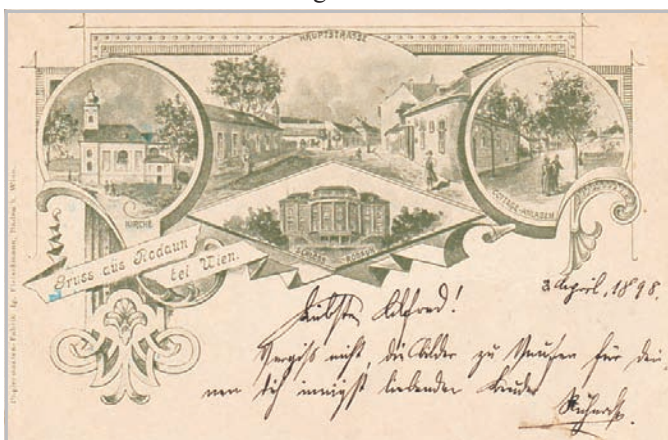 HAUPTSTRASSE
KIRCHE
COTTAGE-ANLAGEN
SCHLOSS RODAUN
Gruss aus Rodaun
bei Wien.
3. April, 1898.
Liebster Alfred!
Vergiss nicht, die Bilder zu kaufen für dei-
nen dich innigst liebenden Bruder
Richard.
Papierwaaren-Fabrik Ig. Fleischmann, b. Wien.